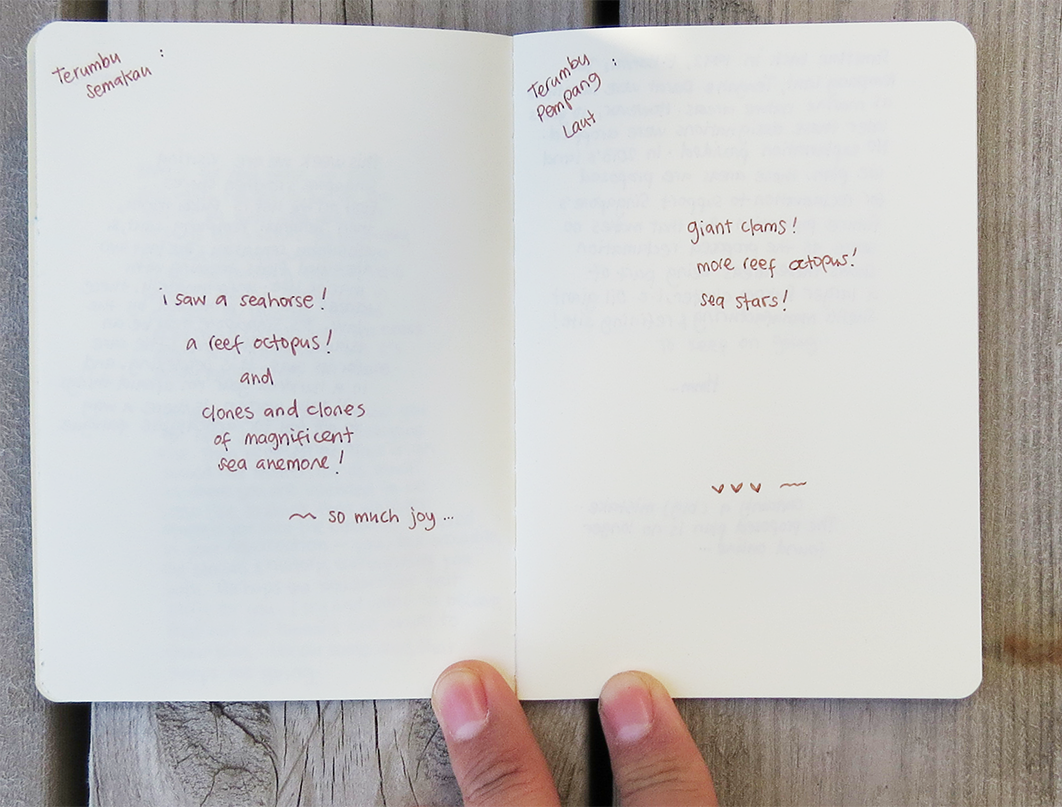 Terumbu :
Semakau
i saw a seahorse!
a reef octopus!
and
clones and clones
of magnificent
sea anemone!
~ so much joy ...
Terumbu :
Pempang
Laut
giant clams!
more reef octopus!
sea stars!